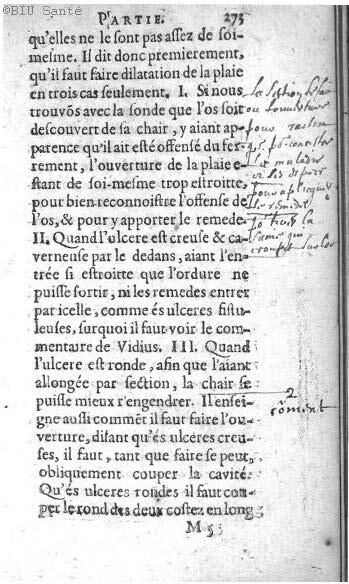 ©BIU Santé
PARTIE. 275
qu'elles ne le sont pas assez de soi-
mesme. Il dit donc premierement,
qu'il faut faire dilatation de la plaie
en trois cas seulement. I. Si nous
trouvõs avec la sonde que l'os soit
descouvert de sa chair, y aiant ap-
parence qu'il ait esté offensé du fer-
rement, l'ouverture de la plaie e-
stant de soi-mesme trop estroitte,
pour bien reconnoistre l'offense de
l'os, & pour y apporter le remede.
II. Quand l'ulcere est creuse & ca-
verneuse par le dedans, aiant l'en-
trée si estroitte que l'ordure ne
puisse sortir, ni les remedes entrer
par icelle, comme és ulceres fistu-
leuses, surquoi il faut voir le com-
mentaire de Vidius. III. Quand
l'ulcere est ronde, afin que l'aiant
allongée par section, la chair se
puisse mieux r'engendrer. Il ensei-
gne aussi commẽt il faut faire l'ou-
verture, disant qu'és ulceres creu-
ses, il faut, tant que faire se peut,
obliquement couper la cavité.
Qu'és ulceres rondes il faut cou-
per le rond des deux costez en long
M 5
ou l'ouverture
pour
2
cõment